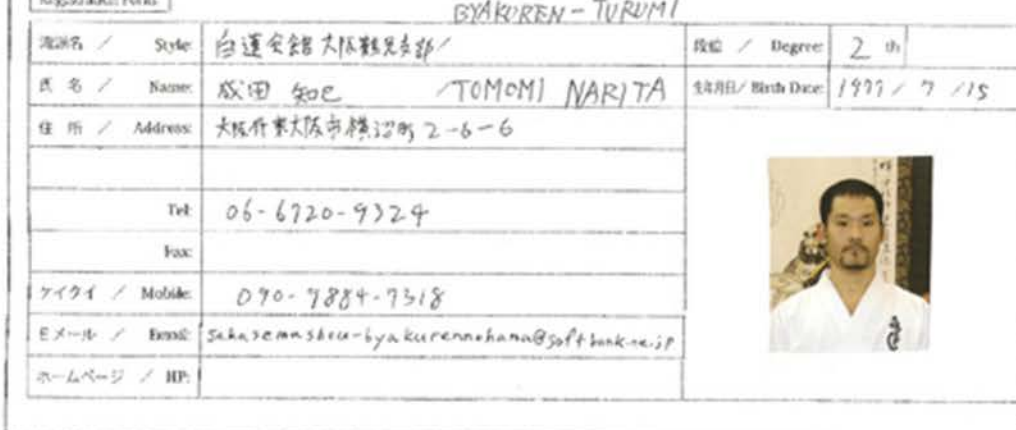 Registration Form
BYAKUREN - TURUMI
流派名 / Style: 白蓮会館 大阪鶴見支部/
段位 / Degree: 2 th
氏名 / Name: 成田 知巳 /TOMOMI NARITA
生年月日/ Birth Date: 1977 / 7 /15
住所 / Address: 大阪府東大阪市横沼町 2-6-6
Tel: 06-6720-9324
Fax:
ケイタイ / Mobile: 090-9884-7318
Eメール / Email: sakasemashou-byakurennohana@softbank.ne.jp
ホームページ / HP: